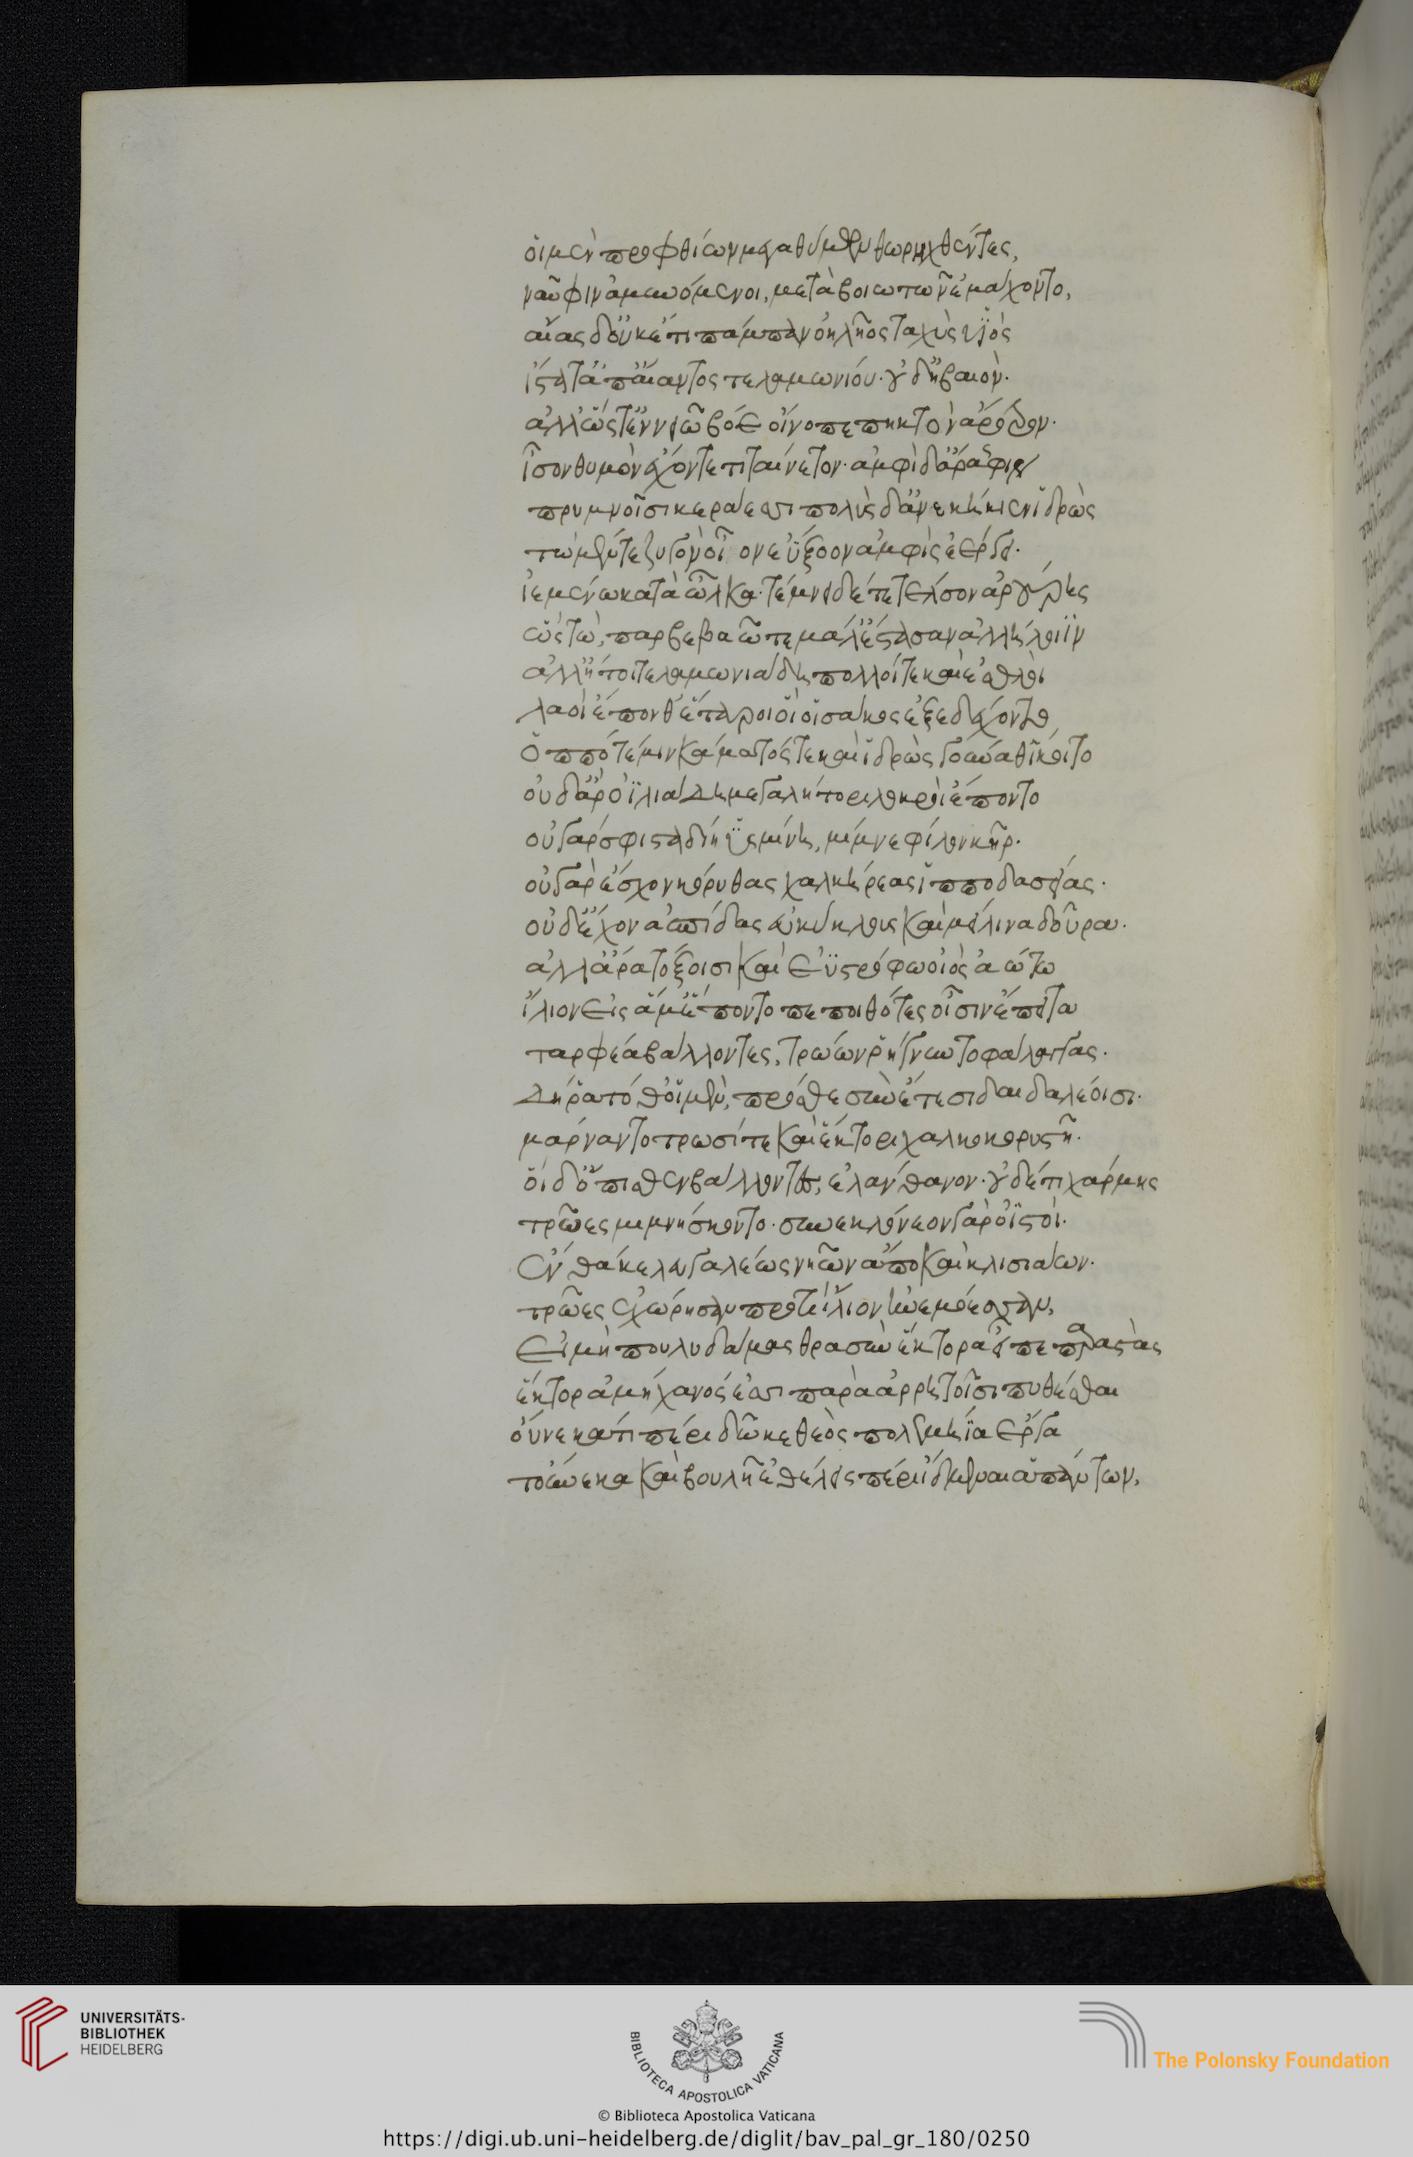 οἱ μὲν πρὸ φθίων μεγαθύμων θωρηχθέντες,
ναῦφιν ἀμυνόμενοι, μετὰ βοιωτῶν ἐμάχοντο,
αἴας δ' οὐκέτι πάμπαν ὀϊλῆος ταχὺς υἱὸς
ἵστατ' ἀπ' αἴαντος τελαμωνίου· οὐδ' ἠβαιὸν·
ἀλλ' ὥστ' ἐν νειῷ βόε οἴνοπε πηκτὸν ἄροτρον·
ἶσον θυμὸν ἔχοντε τιταίνετον· ἀμφὶ δ' ἄρά σφιν
πρυμνοῖσι κεράεσσι πολὺς δ' ἀνεκήκιεν ἱδρὼς
τὼ μέν τε ζυγὸν οἶον ἐΰξοον ἀμφὶς ἐέργει·
ἱεμένω κατὰ ὦλκα· τέμνει δέ τε τέλσον ἀρούρης
ὣς τὼ, παρβεβαῶτε μάλ' ἕστασαν ἀλλήλοιϊν
ἀλλ' ἤτοι τελαμωνιάδῃ πολλοί τε καὶ ἐσθλοὶ
λαοὶ ἕπονθ' ἕταροι οἵ οἱ σάκος ἐξεδέχοντο
ὁππότε μιν κάματός τε καὶ ἱδρὼς γούναθ' ἵκοιτο
οὐδ' ἄρ' ὀϊλιάδῃ μεγαλήτορι λοκροὶ ἕποντο
οὐ γάρ σφι σταδίῃ ὑσμίνῃ, μίμνε φίλον κῆρ·
οὐ γὰρ ἔσχον κόρυθας χαλκήρεας ἱπποδασείας·
οὐδ' ἔχον ἀσπίδας εὐκύκλους καὶ μείλινα δοῦρα·
ἀλλ' ἄρα τόξοισι καὶ ἐϋστρόφω οἰὸς ἀώτω
ἴλιον εἰς ἅμ' ἕποντο πεποιθότες οἷσιν ἔπειτα
ταρφέα βάλλοντες, τρώων ῥήγνυντο φάλαγγας·
δή ῥα τόθ' οἱ μὲν, πρόσθε σὺν ἔτεσι δαιδαλέοισι·
μάρναντο τρωσί τε καὶ ἕκτορι χαλκοκορυστῆ·
οἱ δ' ὄπισθεν βάλλοντες, ἐλάνθανον· οὐδέ τι χάρμης
τρῶες μιμνήσκοντο· συνεκλόνεον γὰρ ὀϊστοί·
ἔνθά κε λευγαλέως νηῶν ἄπο καὶ κλισιάων·
τρῶες ἐχώρησαν προτὶ ἴλιον ἠνεμόεσσαν,
εἰ μὴ πουλυδάμας θρασὺν ἕκτορα εἶπε παραστάς
ἕκτορ ἀμήχανός ἐσσι παραρρητοῖσι πυθέσθαι
οὕνεκά τι πέρι δῶκε θεὸς πολεμήϊα ἔργα
τοὔνεκα καὶ βουλῇ ἐθέλεις πέρι ἴδμεναι ἁπάντων,
UNIVERSITÄTS-
BIBLIOTHEK
HEIDELBERG
BIBLIOTECA APOSTOLICA VATICANA
The Polonsky Foundation
© Biblioteca Apostolica Vaticana
https://digi.ub.uni-heidelberg.de/diglit/bav_pal_gr_180/0250